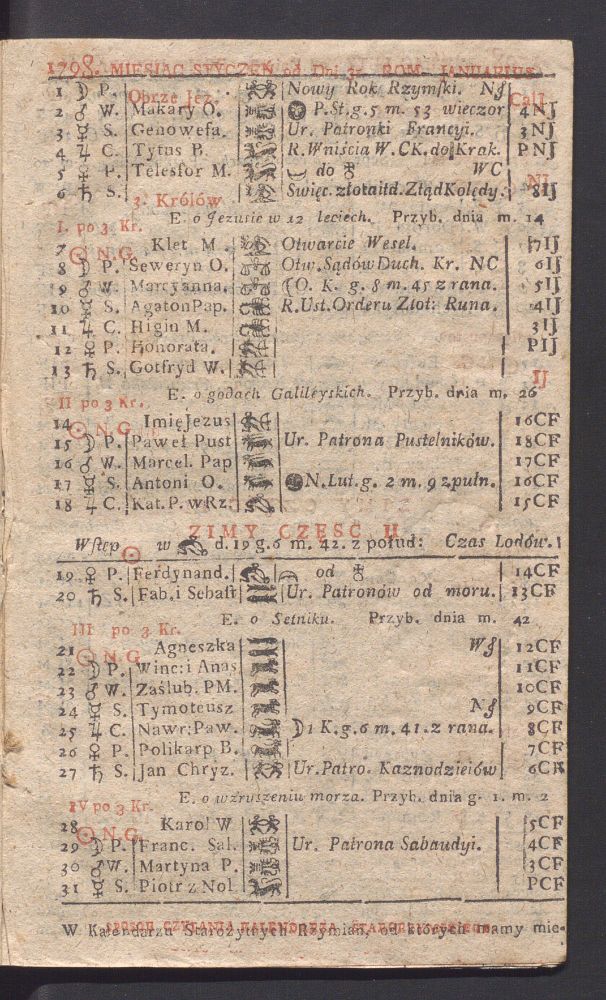 1798. MIESIĄC STYCZEŃ od Dni 31. ROM. JANUARIUS
1 ☽ P. Obrze Jez. Nowy Rok Rzymſki. N♂ Cal J
2 ♂ W. Makary O. P. St. g. 5 m. 53 wieczor 4NJ
3 ☿ S. Genowefa. Ur. Patronki Francyi. 3NJ
4 ♃ C. Tytus B. R. Wniścia W. CK. do Krak. PNJ
5 ♀ P. Telesfor M. do WC NJ
6 ♄ S. 3. Królów Swięc. złota itd. Ztąd Kolędy. 8IJ
E. o Jezusie w 12 leciech. Przyb. dnia m. 14
I. po 3. Kr.
7 ☉ N.G. Klet M. Otwarcie Wesel. 7IJ
8 ☽ P. Seweryn O. Otw. Sądów Duch. Kr. NC 6IJ
9 ♂ W. Marcyanna. O. K. g. 8 m. 45 z rana. 5IJ
10 ☿ S. Agaton Pap. R. Ust. Orderu Złot: Runa. 4IJ
11 ♃ C. Higin M. 3IJ
12 ♀ P. Honorata. PIJ
13 ♄ S. Gotfryd W. IJ
E. o godach Galileyskich. Przyb. dnia m. 26
II po 3 Kr.
14 ☉ N.G. Imię Jezus 16CF
15 ☽ P. Paweł Pust Ur. Patrona Pustelników. 18CF
16 ♂ W. Marcel. Pap 17CF
17 ☿ S. Antoni O. N. Lut. g. 2 m. 9 z puln. 16CF
18 ♃ C. Kat. P. w Rz. 15CF
ZIMY CZĘSC II.
Wſtęp ☉ w d. 19 g. 6 m. 42. z połud: Czas Lodów.
19 ♀ P. Ferdynand. od 14CF
20 ♄ S. Fab. i Sebaſt Ur. Patronów od moru. 13CF
E. o Setniku. Przyb. dnia m. 42
III po 3 Kr.
21 ☉ N.G. Agneszka W♂ 12CF
22 ☽ P. Winc: i Anas 11CF
23 ♂ W. Zaślub. PM. 10CF
24 ☿ S. Tymoteusz N♂ 9CF
25 ♃ C. Nawr: Paw. ☽ 1 K. g. 6 m. 41. z rana. 8CF
26 ♀ P. Polikarp B. 7CF
27 ♄ S. Jan Chryz. Ur. Patro. Kaznodzieiów 6CF
E. o wzruszeniu morza. Przyb. dnia g. 1. m. 2
IV po 3 Kr.
28 ☉ N.G. Karol W 5CF
29 ☽ P. Franc. Sal. Ur. Patrona Sabaudyi. 4CF
30 ♂ W. Martyna P. 3CF
31 ☿ S. Piotr z Nol PCF
SPOSOB CZYTANIA KALENDARZA STARORZYMSKIEGO.
W Kalendarzu Starożytnych Rzymian, od których mamy mie-